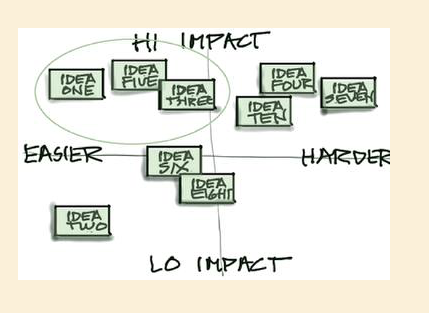 HI IMPACT
IDEA
ONE
IDEA
FIVE
IDEA
THREE
IDEA
FOUR
IDEA
SEVEN
IDEA
TEN
EASIER
HARDER
IDEA
SIX
IDEA
EIGHT
IDEA
TWO
LO IMPACT